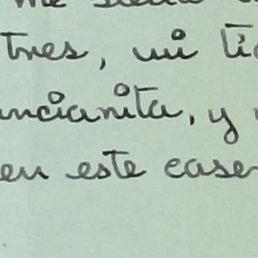 me
tres, mi tí
ncianita, y
en este caser